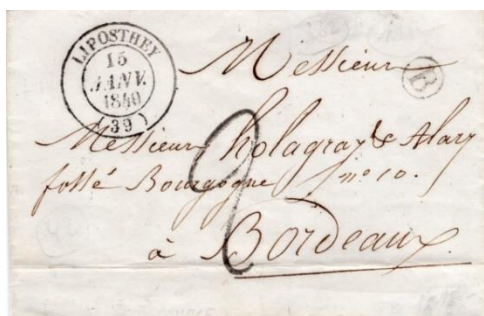 LIPOSTHEY
15
JANV.
1840
(39)
Messieurs
B
Messieurs holagray & Alary
fossé Bourgogne n° 10.
2
à Bordeaux